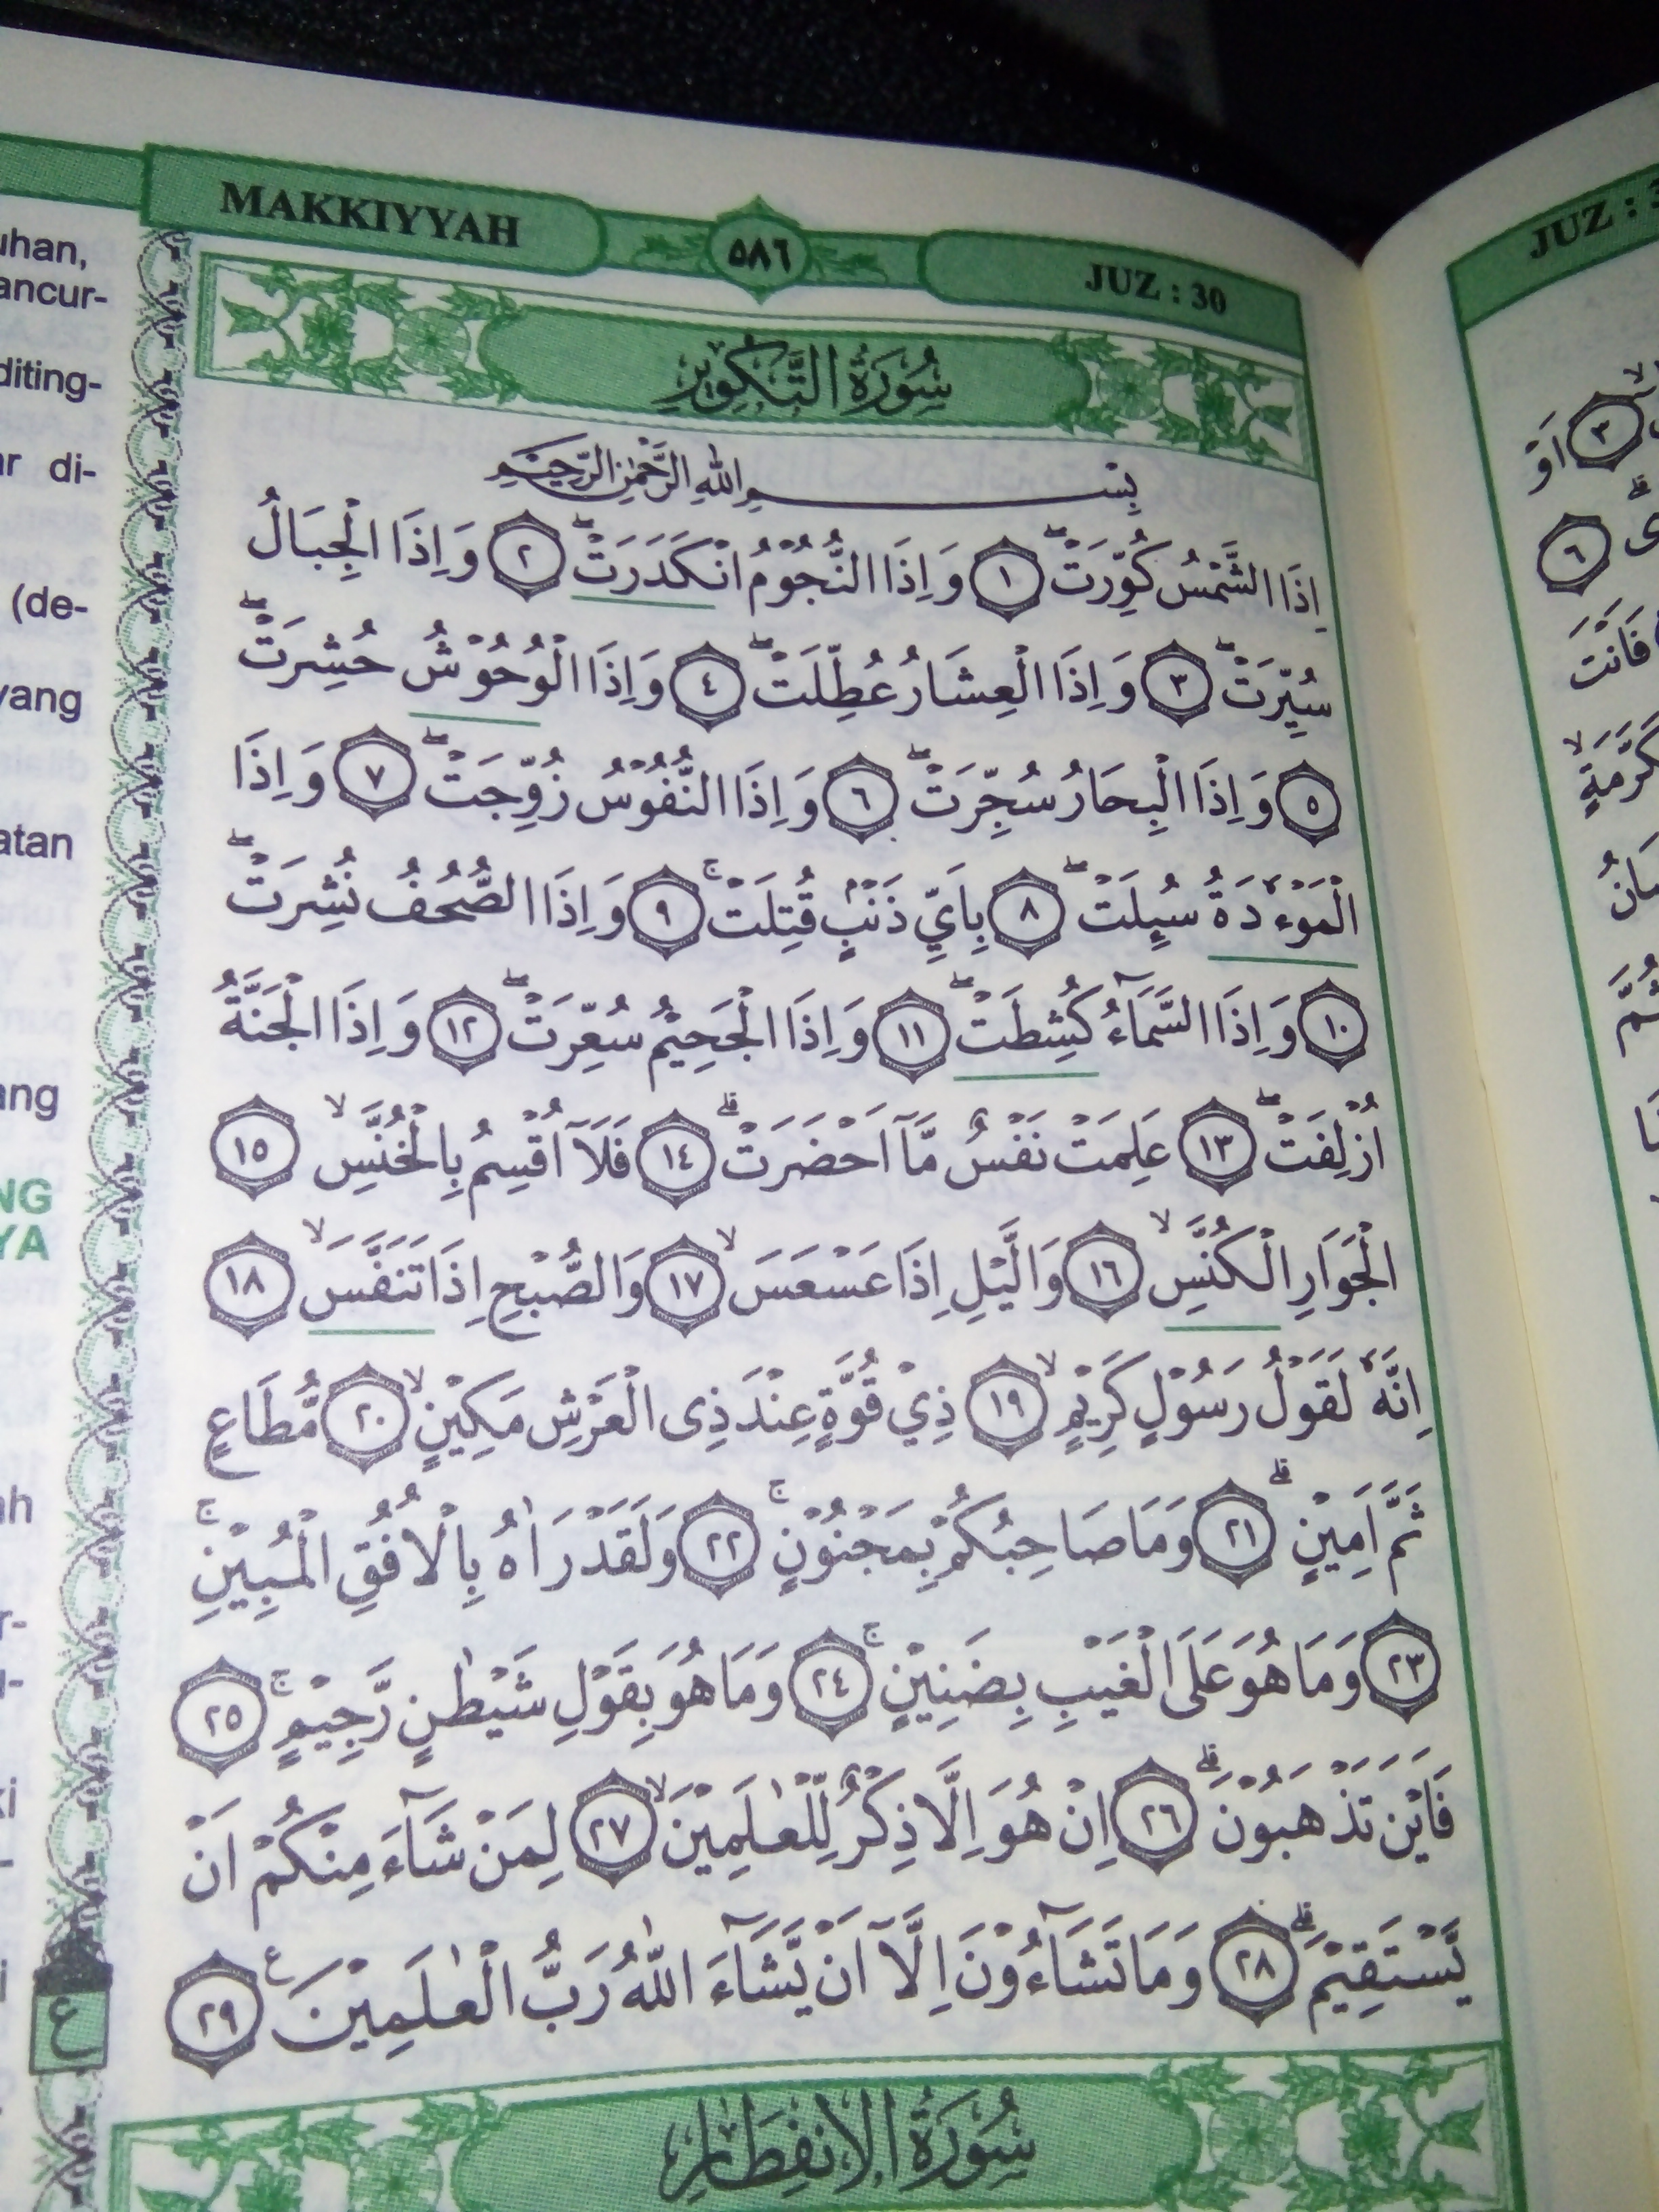 MAKKIYYAH ٥٨٦ JUZ : 30
سُوْرَةُ التَّكْوِيْرِ
بِسْمِ اللهِ الرَّحْمٰنِ الرَّحِيْمِ
اِذَا الشَّمْسُ كُوِّرَتْۖ ١ وَاِذَا النُّجُوْمُ انْكَدَرَتْۖ ٢ وَاِذَا الْجِبَالُ
سُيِّرَتْۖ ٣ وَاِذَا الْعِشَارُ عُطِّلَتْۖ ٤ وَاِذَا الْوُحُوْشُ حُشِرَتْۖ
٥ وَاِذَا الْبِحَارُ سُجِّرَتْۖ ٦ وَاِذَا النُّفُوْسُ زُوِّجَتْۖ ٧ وَاِذَا
الْمَوْءٗدَةُ سُىِٕلَتْۖ ٨ بِاَيِّ ذَنْۢبٍ قُتِلَتْۚ ٩ وَاِذَا الصُّحُفُ نُشِرَتْۖ
١٠ وَاِذَا السَّمَاۤءُ كُشِطَتْۖ ١١ وَاِذَا الْجَحِيْمُ سُعِّرَتْۖ ١٢ وَاِذَا الْجَنَّةُ
اُزْلِفَتْۖ ١٣ عَلِمَتْ نَفْسٌ مَّآ اَحْضَرَتْۗ ١٤ فَلَآ اُقْسِمُ بِالْخُنَّسِۙ ١٥
الْجَوَارِ الْكُنَّسِۙ ١٦ وَالَّيْلِ اِذَا عَسْعَسَۙ ١٧ وَالصُّبْحِ اِذَا تَنَفَّسَۙ ١٨
اِنَّهٗ لَقَوْلُ رَسُوْلٍ كَرِيْمٍۙ ١٩ ذِيْ قُوَّةٍ عِنْدَ ذِى الْعَرْشِ مَكِيْنٍۙ ٢٠ مُّطَاعٍ
ثَمَّ اَمِيْنٍۗ ٢١ وَمَا صَاحِبُكُمْ بِمَجْنُوْنٍۚ ٢٢ وَلَقَدْ رَاٰهُ بِالْاُفُقِ الْمُبِيْنِۚ
٢٣ وَمَا هُوَ عَلَى الْغَيْبِ بِضَنِيْنٍۚ ٢٤ وَمَا هُوَ بِقَوْلِ شَيْطٰنٍ رَّجِيْمٍۚ ٢٥
فَاَيْنَ تَذْهَبُوْنَۗ ٢٦ اِنْ هُوَ اِلَّا ذِكْرٌ لِّلْعٰلَمِيْنَۙ ٢٧ لِمَنْ شَاۤءَ مِنْكُمْ اَنْ
يَّسْتَقِيْمَۗ ٢٨ وَمَا تَشَاۤءُوْنَ اِلَّآ اَنْ يَّشَاۤءَ اللّٰهُ رَبُّ الْعٰلَمِيْنَ ࣖ ٢٩
ع
سُوْرَةُ الْاِنْفِطَارِ
uhan,
ancur-
diting-
ar di-
(de-
yang
atan
ang
NG
YA
ah
JUZ : 3
٣ اَوْ
٦
فَاَنْتَ